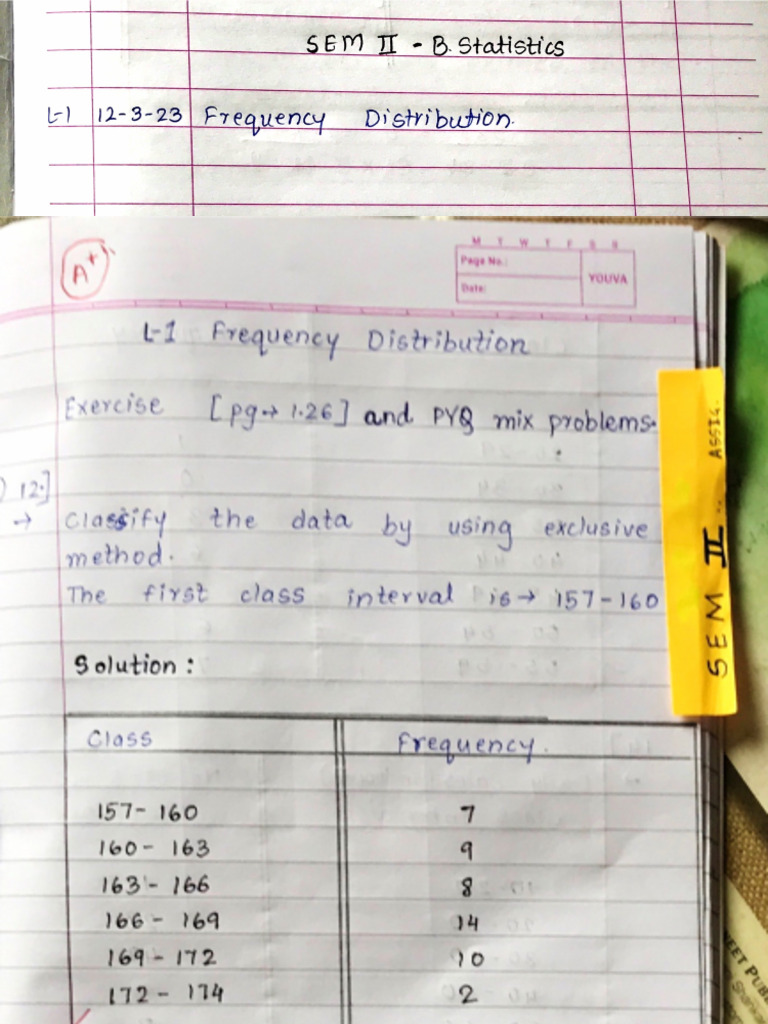 SEM II - B. Statistics
L-1 12-3-23 Frequency Distribution.
A+
M T W T F S S
Page No.:
Date:
YOUVA
L-1 Frequency Distribution
Exercise [pg→ 1.26] and PYQ mix problems.
) 12.]
→ Classify the data by using exclusive
method.
The first class interval is → 157-160
Solution:
Class Frequency.
157- 160 7
160- 163 9
163- 166 8
166- 169 14
169- 172 10
172- 174 2
SEM II
ASSIG.